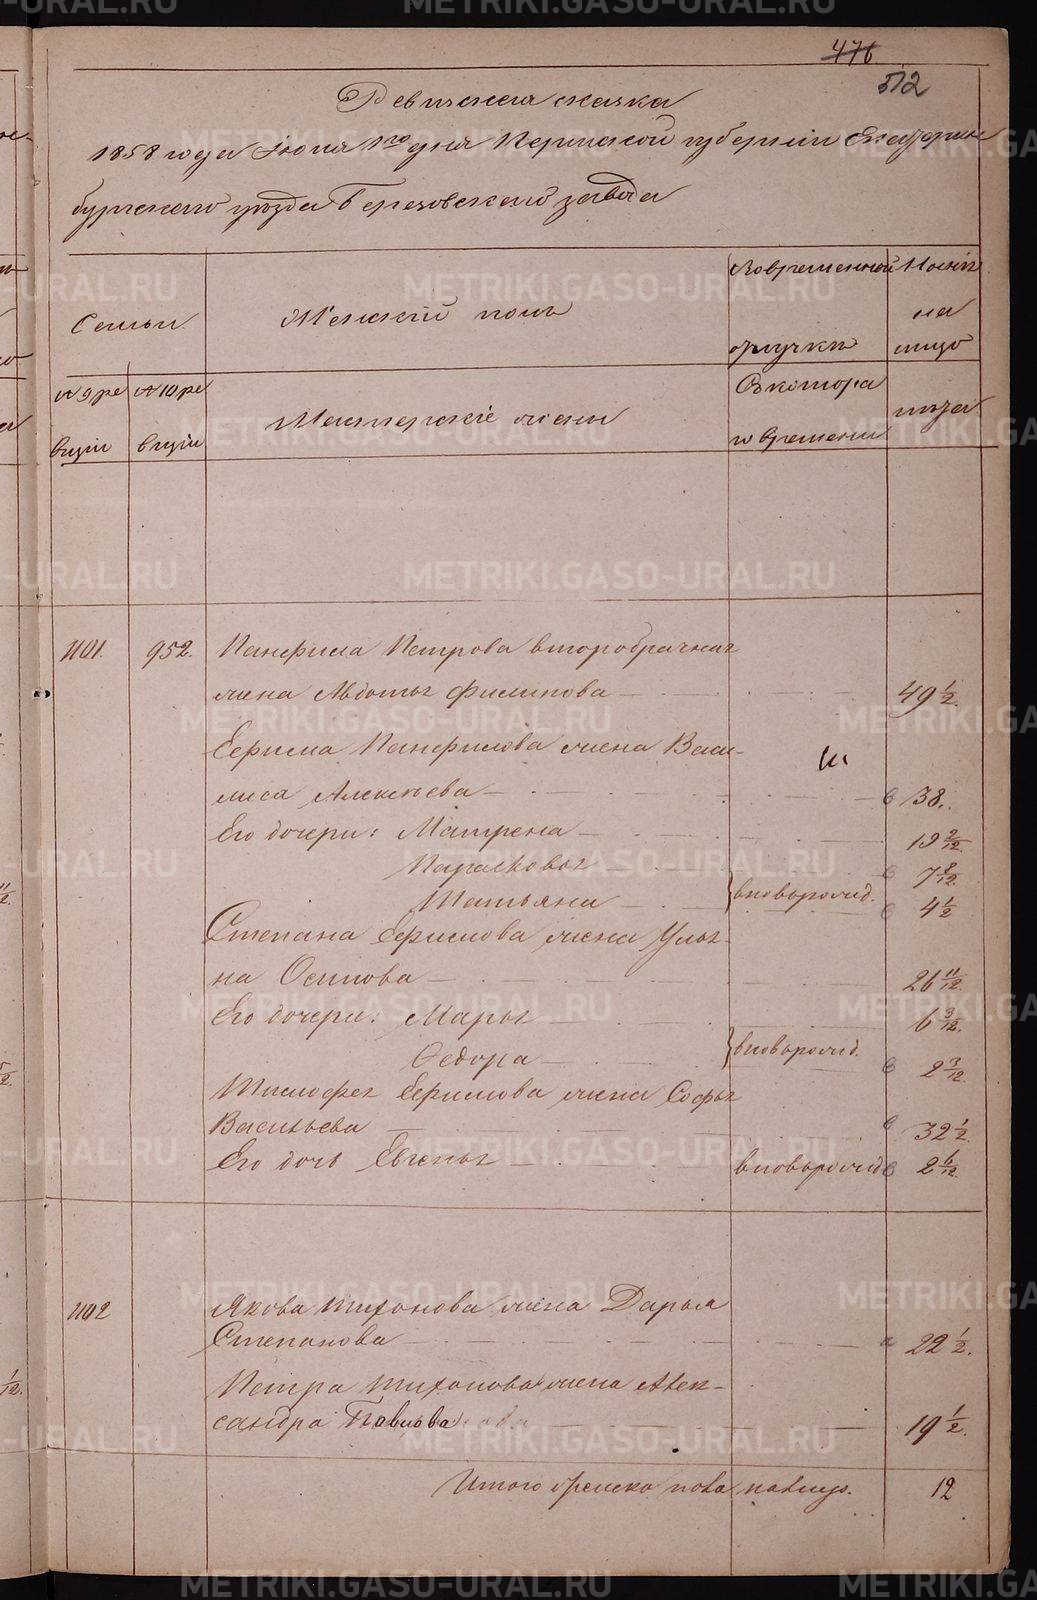 476
512
Ревижская сказка
1858 года Июня 1го дня Пермской губернии Екатерин
бургского уезда Березовского завода
Семьи
Женский полъ
Во временной
отлучкѣ
Нынѣ
на
лицо
№ 9 ре
визiи
№ 10 ре
визiи
Мастерскiе жены
Съ котора
го времени
лѣта
1101. 952. Панфила Петрова второбрачная
жена Авдотья Филипова 49 1/2.
Ефима Панфилова жена Васи-
лиса Алексѣева 38.
Его дочери: Матрена 19 2/12.
Парасковья 7 8/12.
Татьяна вноворожд. 4 1/2
Степана Ефимова жена Улья-
на Осипова 26 11/12.
Его дочери: Марья 6 3/12.
Федора вноворожд. 2 3/12.
Тимофея Ефимова жена Софья
Васильева 32 1/2.
Его дочь Евгенья вноворожд 2 6/12.
1102 Якова Тихонова жена Дарья
Степанова 22 1/2.
Петра Тихонова жена Алек-
сандра Павлова 19 1/2.
Итого женска пола налицо. 12
METRIKI.GASO-URAL.RU